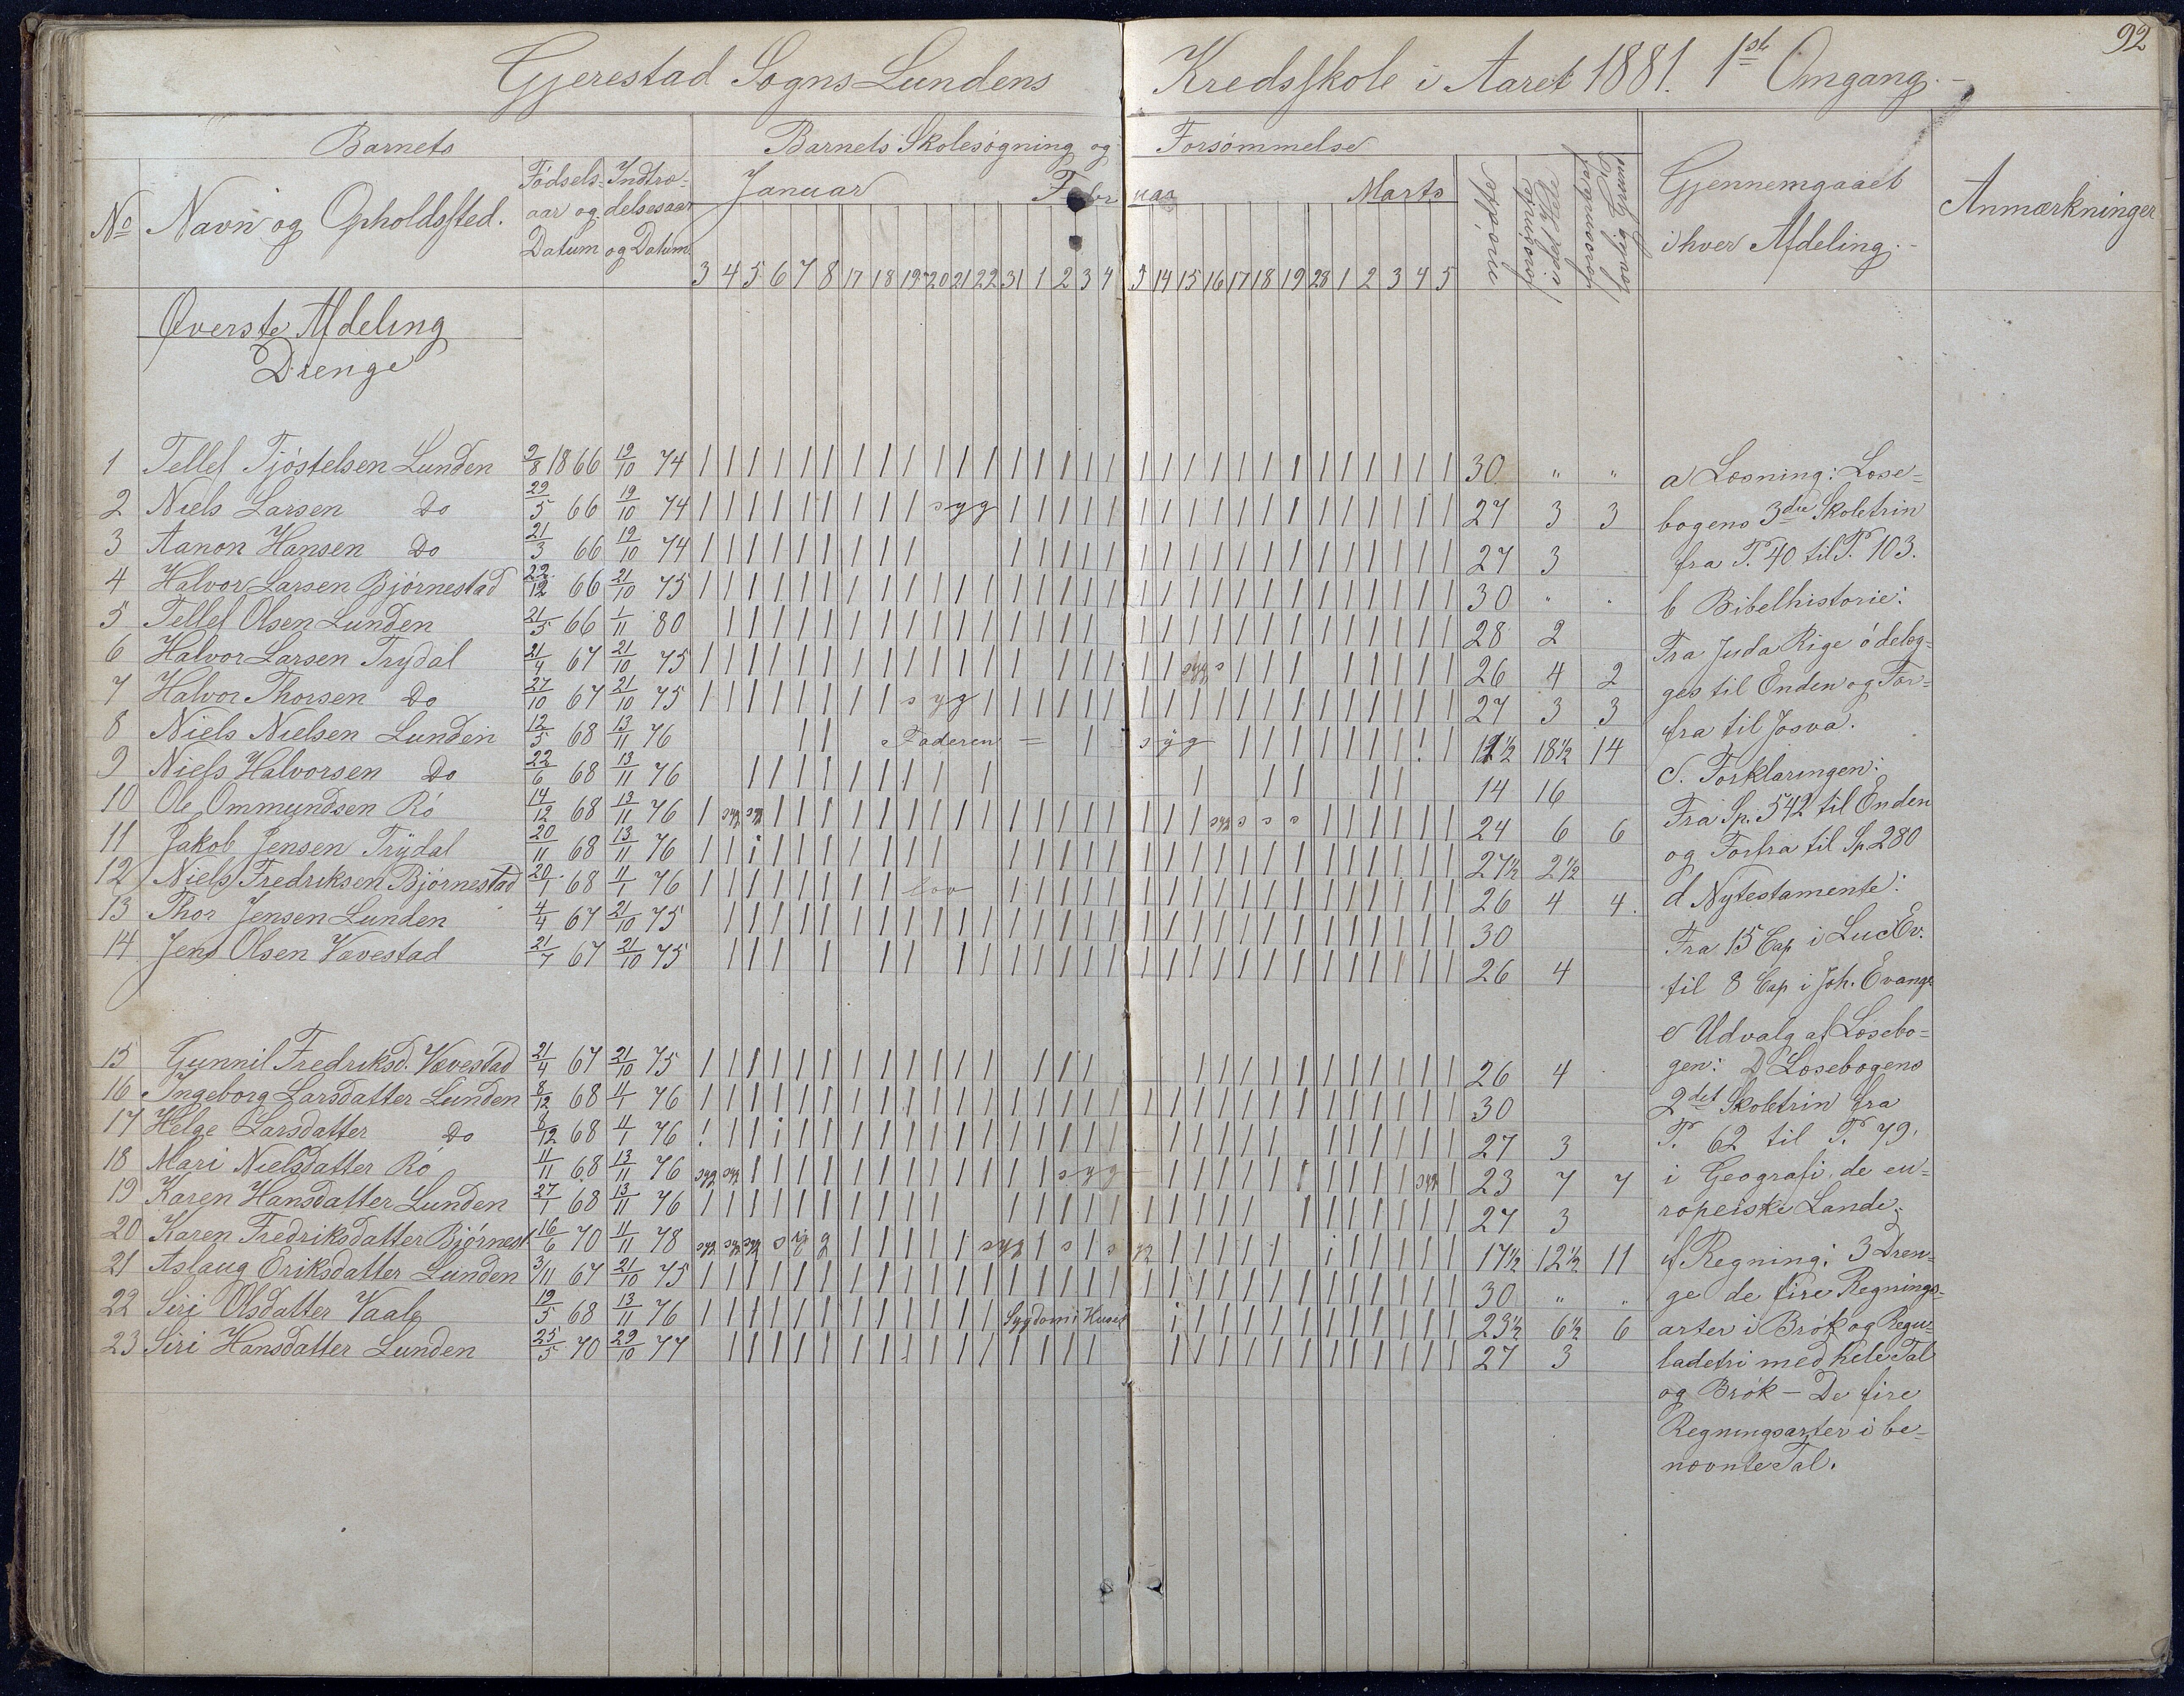 92
Gjerestad Sogns Lundens Kredsskole i Aaret 1881. 1ste Omgang.
Barnets
Barnets Skolesøgning og Forsømmelse
No
Navn og Opholdssted.
Fødsels- aar og Datum
Indtræ- delsesaar og Datum.
Januar Februar Marts
3 4 5 6 7 8 17 18 19 20 21 22 31 1 2 3 4 5 14 15 16 17 18 19 28 1 2 3 4 5
Gjennemgaaet
i hver Afdeling.
Anmærkninger
Øverste Afdeling
Drenge
1 Tellef Tjøstelsen Lunden 9/8 1866 19/10 74 30 " "
2 Niels Larsen Do 29/5 66 19/10 74 syg 27 3 3
3 Aanon Hansen Do 21/3 66 19/10 74 27 3
4 Halvor Larsen Bjørnestad 22/12 66 21/10 75 30 " "
5 Tellef Olsen Lunden 21/5 66 1/11 80 28 2
6 Halvor Larsen Trydal 21/4 67 21/10 75 syg s 26 4 2
7 Halvor Thorsen Do 27/10 67 21/10 75 syg 27 3 3
8 Niels Nielsen Lunden 12/5 68 13/11 76 Faderen = syg 11½ 18½ 14
9 Niels Halvorsen Do 22/6 68 13/11 76 14 16
10 Ole Ommundsen Rø 14/12 68 13/11 76 syg syg syg s s s 24 6 6
11 Jakob Jensen Trydal 20/11 68 13/11 76 27½ 2½
12 Niels Fredriksen Bjørnestad 20/1 68 11/1 76 lov 26 4 4.
13 Thor Jensen Lunden 4/4 67 21/10 75 30
14 Jens Olsen Vævestad 21/7 67 21/10 75 26 4
15 Gunnil Fredriksd. Vævestad 21/4 67 21/10 75 26 4
16 Ingeborg Larsdatter Lunden 8/12 68 11/1 76 30
17 Helge Larsdatter Do 8/12 68 11/1 76 27 3
18 Mari Nielsdatter Rø 11/11 68 13/11 76 syg syg syg syg 23 7 7
19 Karen Hansdatter Lunden 27/1 68 13/11 76 27 3
20 Karen Fredriksdatter Bjørnest 16/6 70 11/11 78 syg syg syg syg syg s s yg 17½ 12½ 11
21 Aslaug Eriksdatter Lunden 3/11 67 21/10 75 30 " "
22 Siri Olsdatter Vaale 19/5 68 13/11 76 Sygdom i Huset 23½ 6½ 6
23 Siri Hansdatter Lunden 25/5 70 29/10 77 27 3
a Læsning: Læse-
bogens 3die Skoletrin
fra P. 40 til P. 103.
b Bibelhistorie:
Fra Juda Rige ødelæg-
ges til Enden og For-
fra til Josva.
c. Forklaringen:
Fra Sp. 542 til Enden
og Forfra til Sp 280
d Nytestamente:
Fra 15 Cap i Luc Ev.
til 8 Cap i Joh. Evange
e Udvalg af Læsebo-
gen: D Læsebogens
2det Skoletrin fra
P. 62 til P. 79.
i Geografi, de eu-
ropeiske Lande.
f Regning: 3 Dren-
ge de fire Regnings-
arter i Brøk og Regu-
ladetri med hele Tal
og Brøk - De fire
Regningsarter i be-
nævnte Tal.